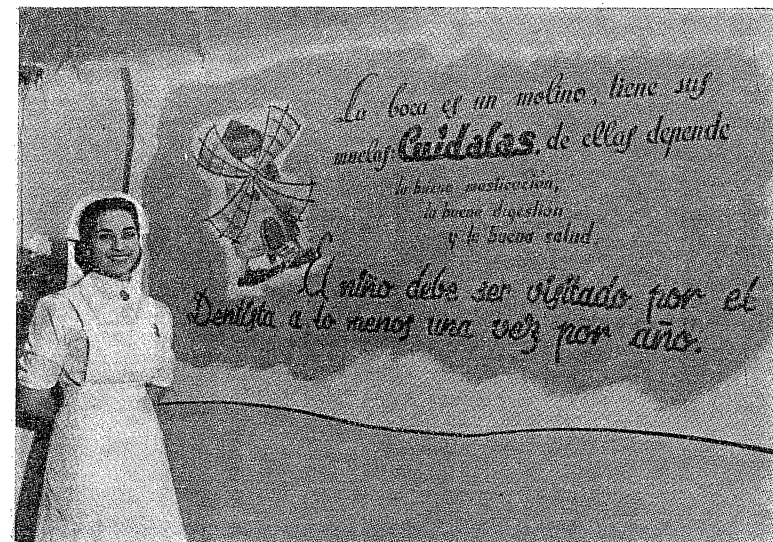 La boca es un molino, tiene sus
muelas. Cuidalas, de ellas depende
la buena masticación,
la buena digestión
y la buena salud.
El niño debe ser visitado por el
Dentista a lo menos una vez por año.